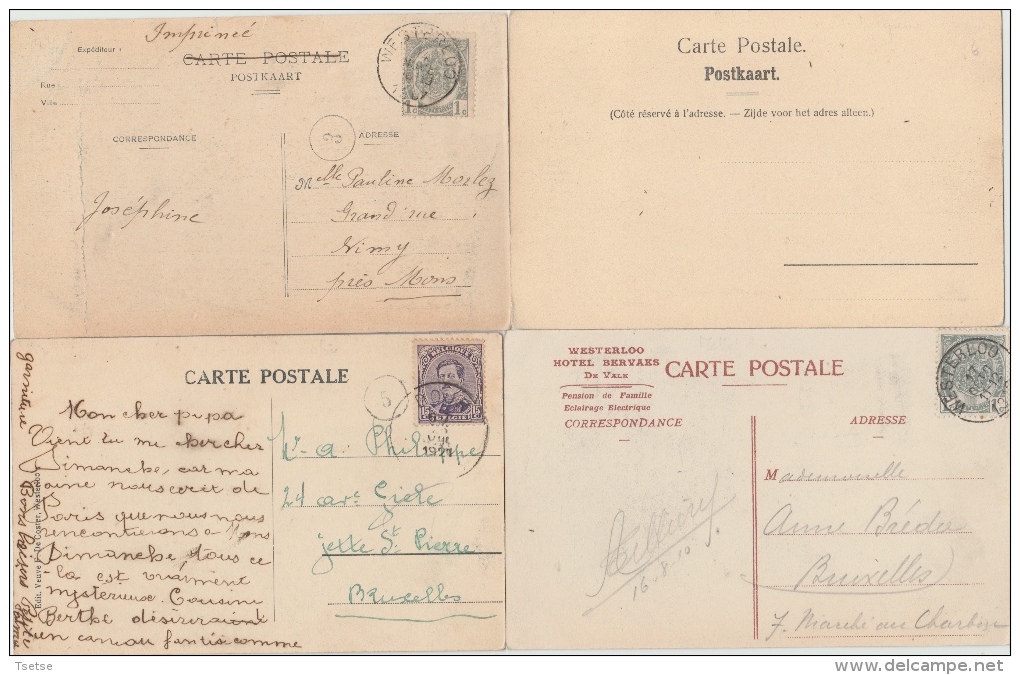 Imprimée
Expéditeur :
CARTE POSTALE
POSTKAART
Rue
Ville
WESTERLOO
1c
1c
CORRESPONDANCE
ADRESSE
3
Joséphine
Melle Pauline Morlez
Grand'rue
Nimy
près Mons
Carte Postale.
Postkaart.
(Côté réservé à l'adresse. — Zijde voor het adres alleen.)
CARTE POSTALE
BELGIQUE
15
15
BELGIE
1921
5
Mon cher papa
Vient tu me chercher
Dimanche, car ma
nous écrit de
Paris que nous nous
rencontrerons a Mons
Dimanche, tous ce
la est vraiment
mystérieux. Cousine
Berthe désirerait
un comme
garniture
Bons baisers
Edit. Veuve F. De Coster, Westerloo
Mr. a. Philippe
24 ave Giele
jette St Pierre
Bruxelles
WESTERLOO
HOTEL BERVAES
DE VALK
Pension de Famille
Eclairage Electrique
CARTE POSTALE
CORRESPONDANCE
ADRESSE
WESTERLOO
16.8.10
Mademoiselle
Anne Bréder
Bruxelles
7. Marché au Charbon
Tsetse
delcampe.net